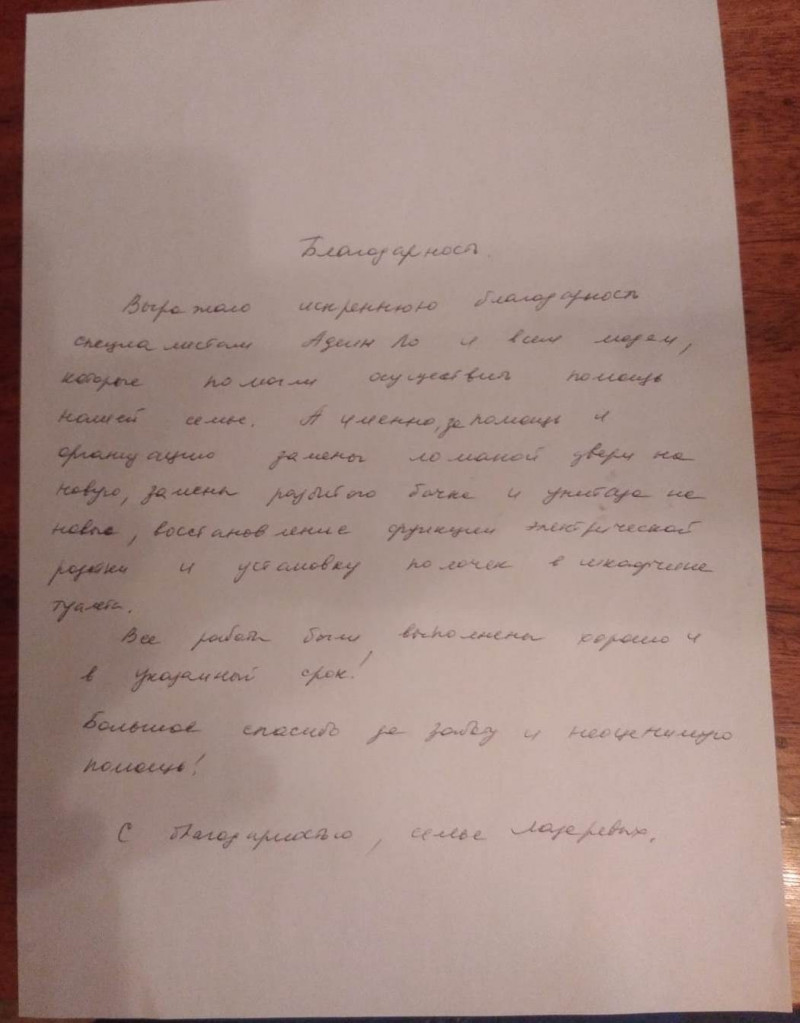 Благодарность.
Выражаю искреннюю благодарность
специалистам и всем людям,
которые помогли осуществить помощь
нашей семье. А именно, за помощь и
организацию замены ломаной двери на
новую, замены разбитого бачка и унитаза на
новые, восстановление функции электрической
розетки и установку полочек в шкафчике
туалета.
Все работы были выполнены хорошо и
в указанный срок!
Большое спасибо за заботу и неоценимую
помощь!
С благодарностью, семье Лазаревых.